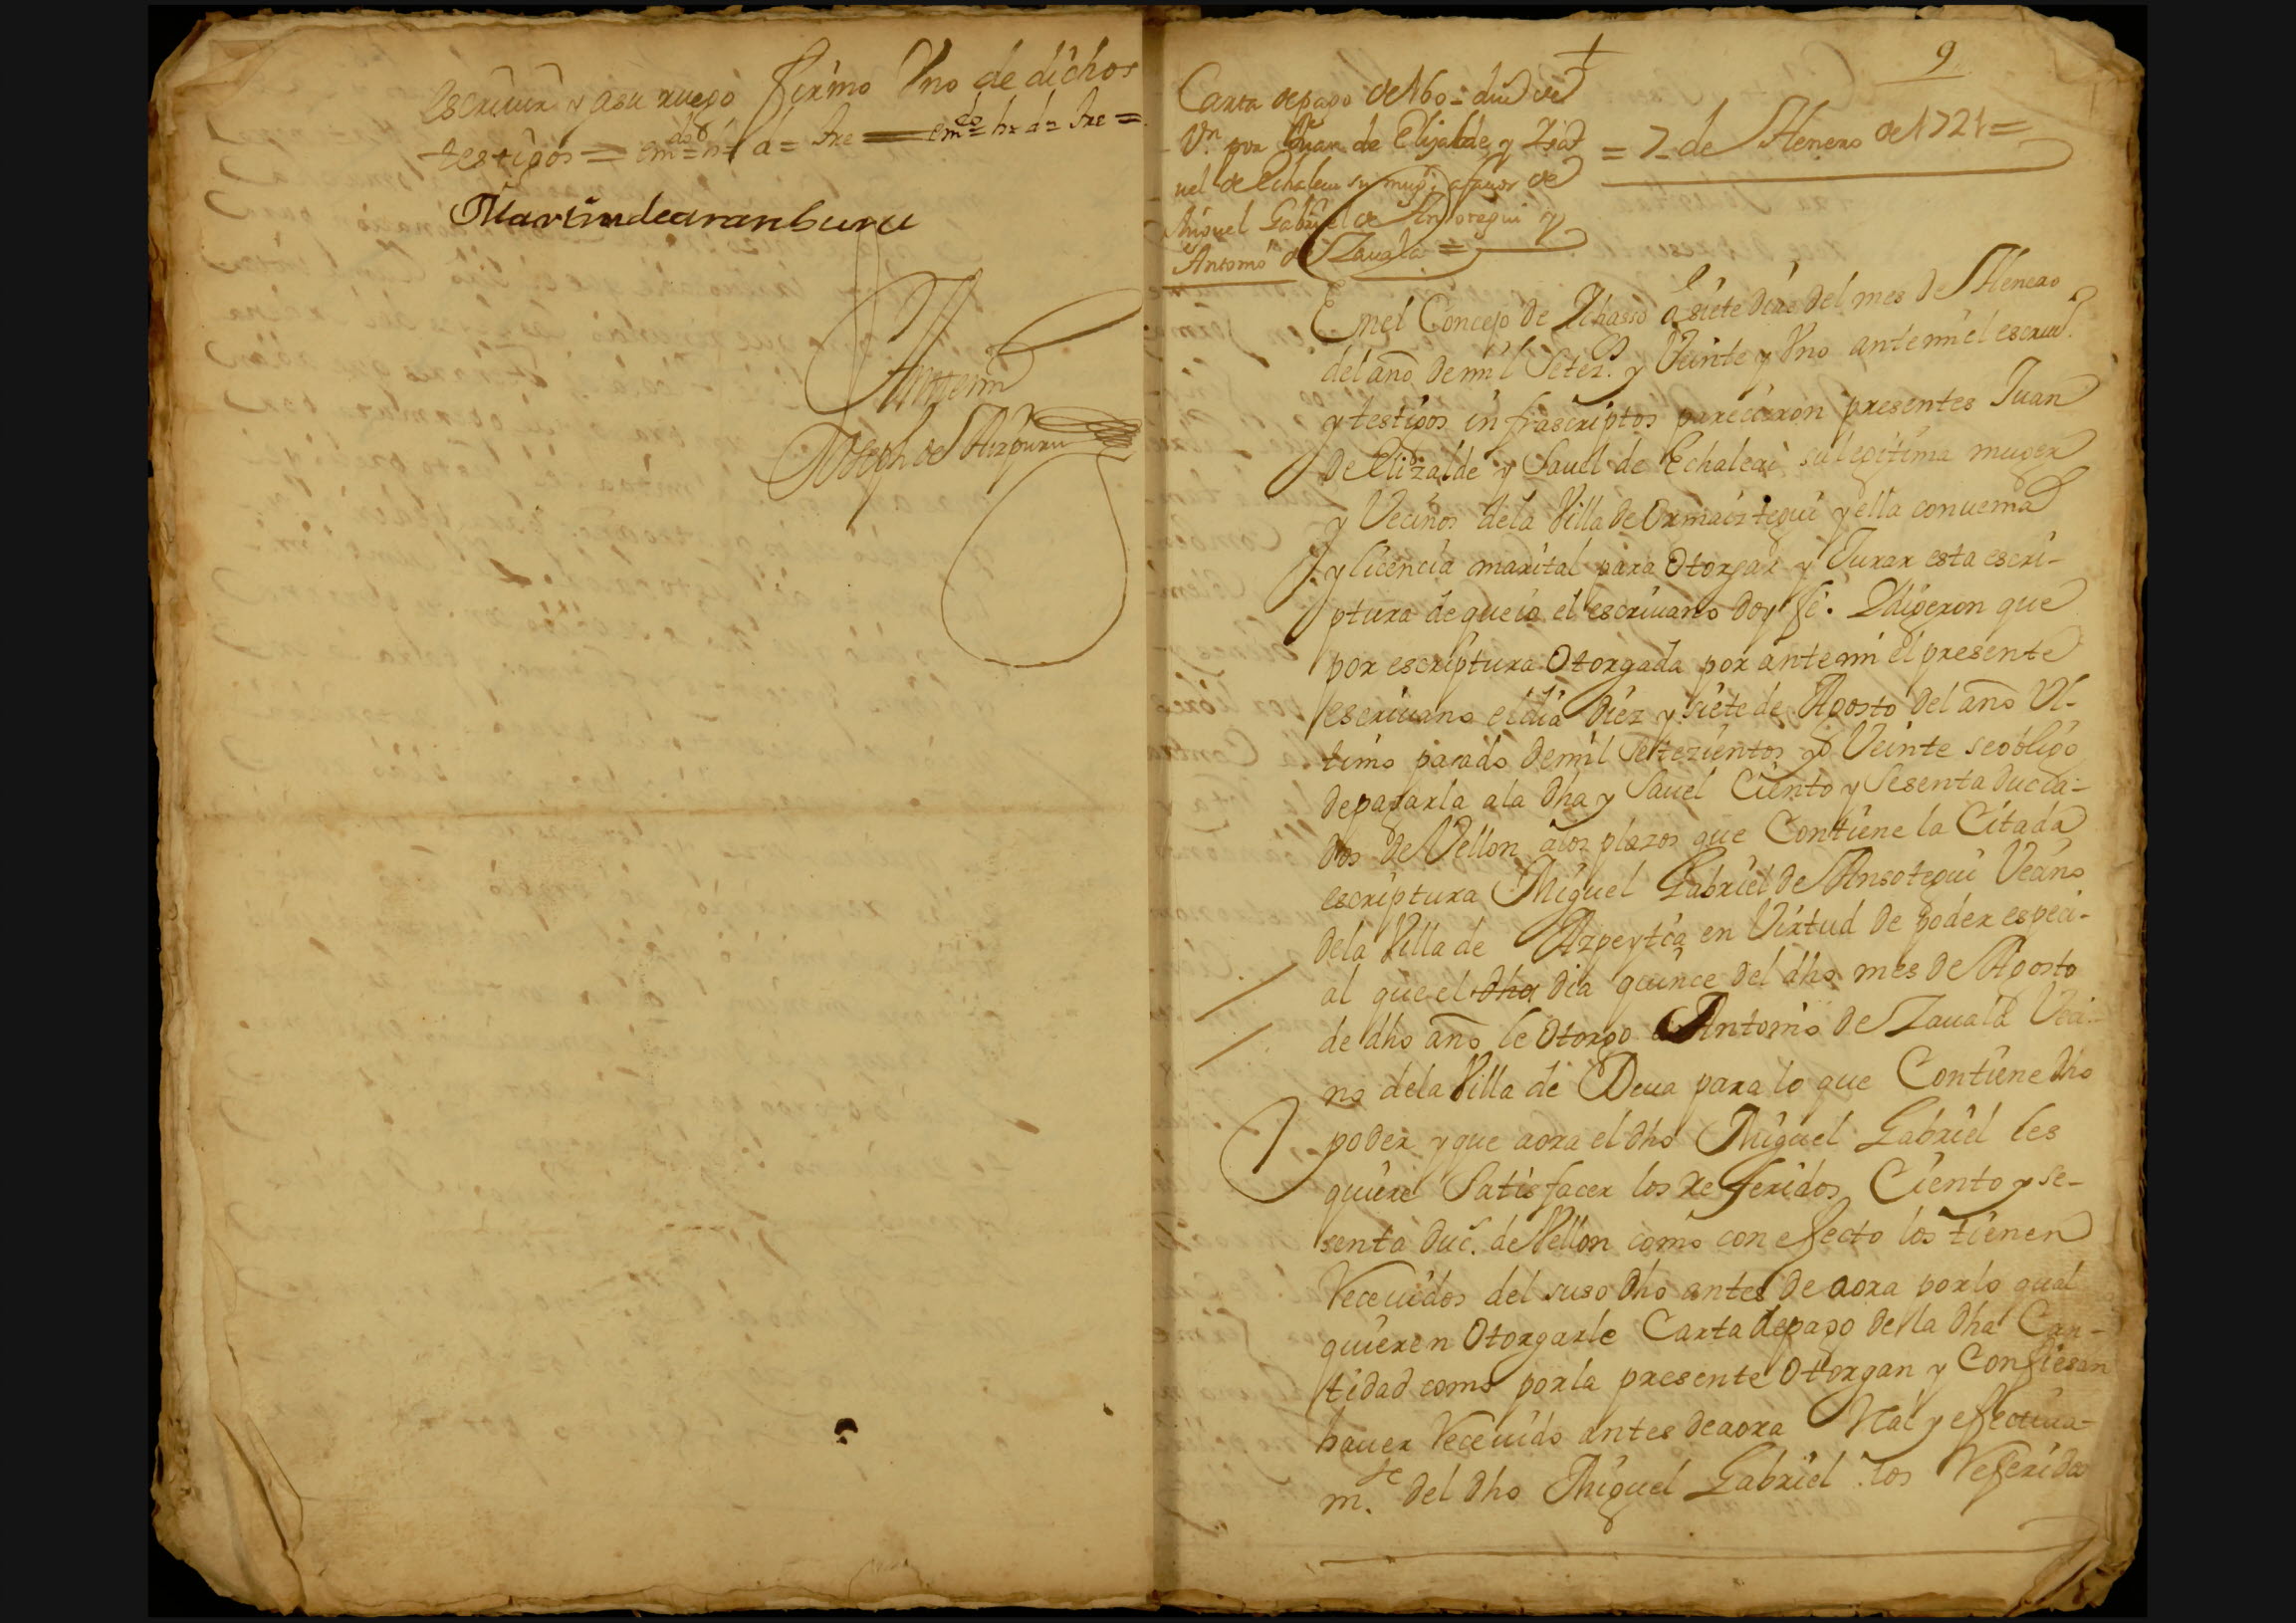 escriuir y a su ruego firmo Vno de dichos
testigos = em.do = h = d = Fre = em.do = h = d = Fre =
Martin de aranburu
Ante mi
Joseph de Aizpuru
9
Carta de pago de 160 = duc.s de
V.n por Juan de Elizalde y Isa-
uel de Echalecu su mug.r a fauor de
Miguel Gabriel de Ansotegui y
Antonio de Zauala =
= 7 de Henero de 1721 =
En el Concejo de Ichasso a siete dias del mes de Henero
del año de mil Setez.os y Veinte y Vno ante mi el escriu.o
y testigos infrascriptos parecieron presentes Juan
de Elizalde y Ysauel de Echalecu su legitima muger
y Vecinos de la Villa de Ormaiztegui y ella con uenia
y licencia marital para Otorgar y Jurar esta escri-
ptura de que io el escriuano doy fe. Y digeron que
por escriptura Otorgada por ante mi el presente
escriuano el dia diez y siete de Agosto del año Vl-
timo pasado de mil Setezientos y Veinte se obligo
de pagarla a la dha Ysauel Ciento y Sesenta duca-
dos de Vellon a los plazos que Contiene la Citada
escriptura Miguel Gabriel de Ansotegui Vecino
de la Villa de Azpeytia en Virtud de poder especi-
al que el dho dia quince del dho mes de Agosto
de dho año le Otorgo Antonio de Zauala Veci-
no de la Villa de Deua para lo que Contiene dho
poder y que aora el dho Miguel Gabriel les
quiere Satisfacer los referidos Ciento y se-
senta duc.s de Vellon como con efecto los tienen
Receuidos del suso dho antes de aora por lo qual
quieren Otorgarle Carta de pago de la dha Can-
tidad como por la presente Otorgan y Confiesan
hauer Receuido antes de aora Real y efectiua-
m.te del dho Miguel Gabriel los Referidos